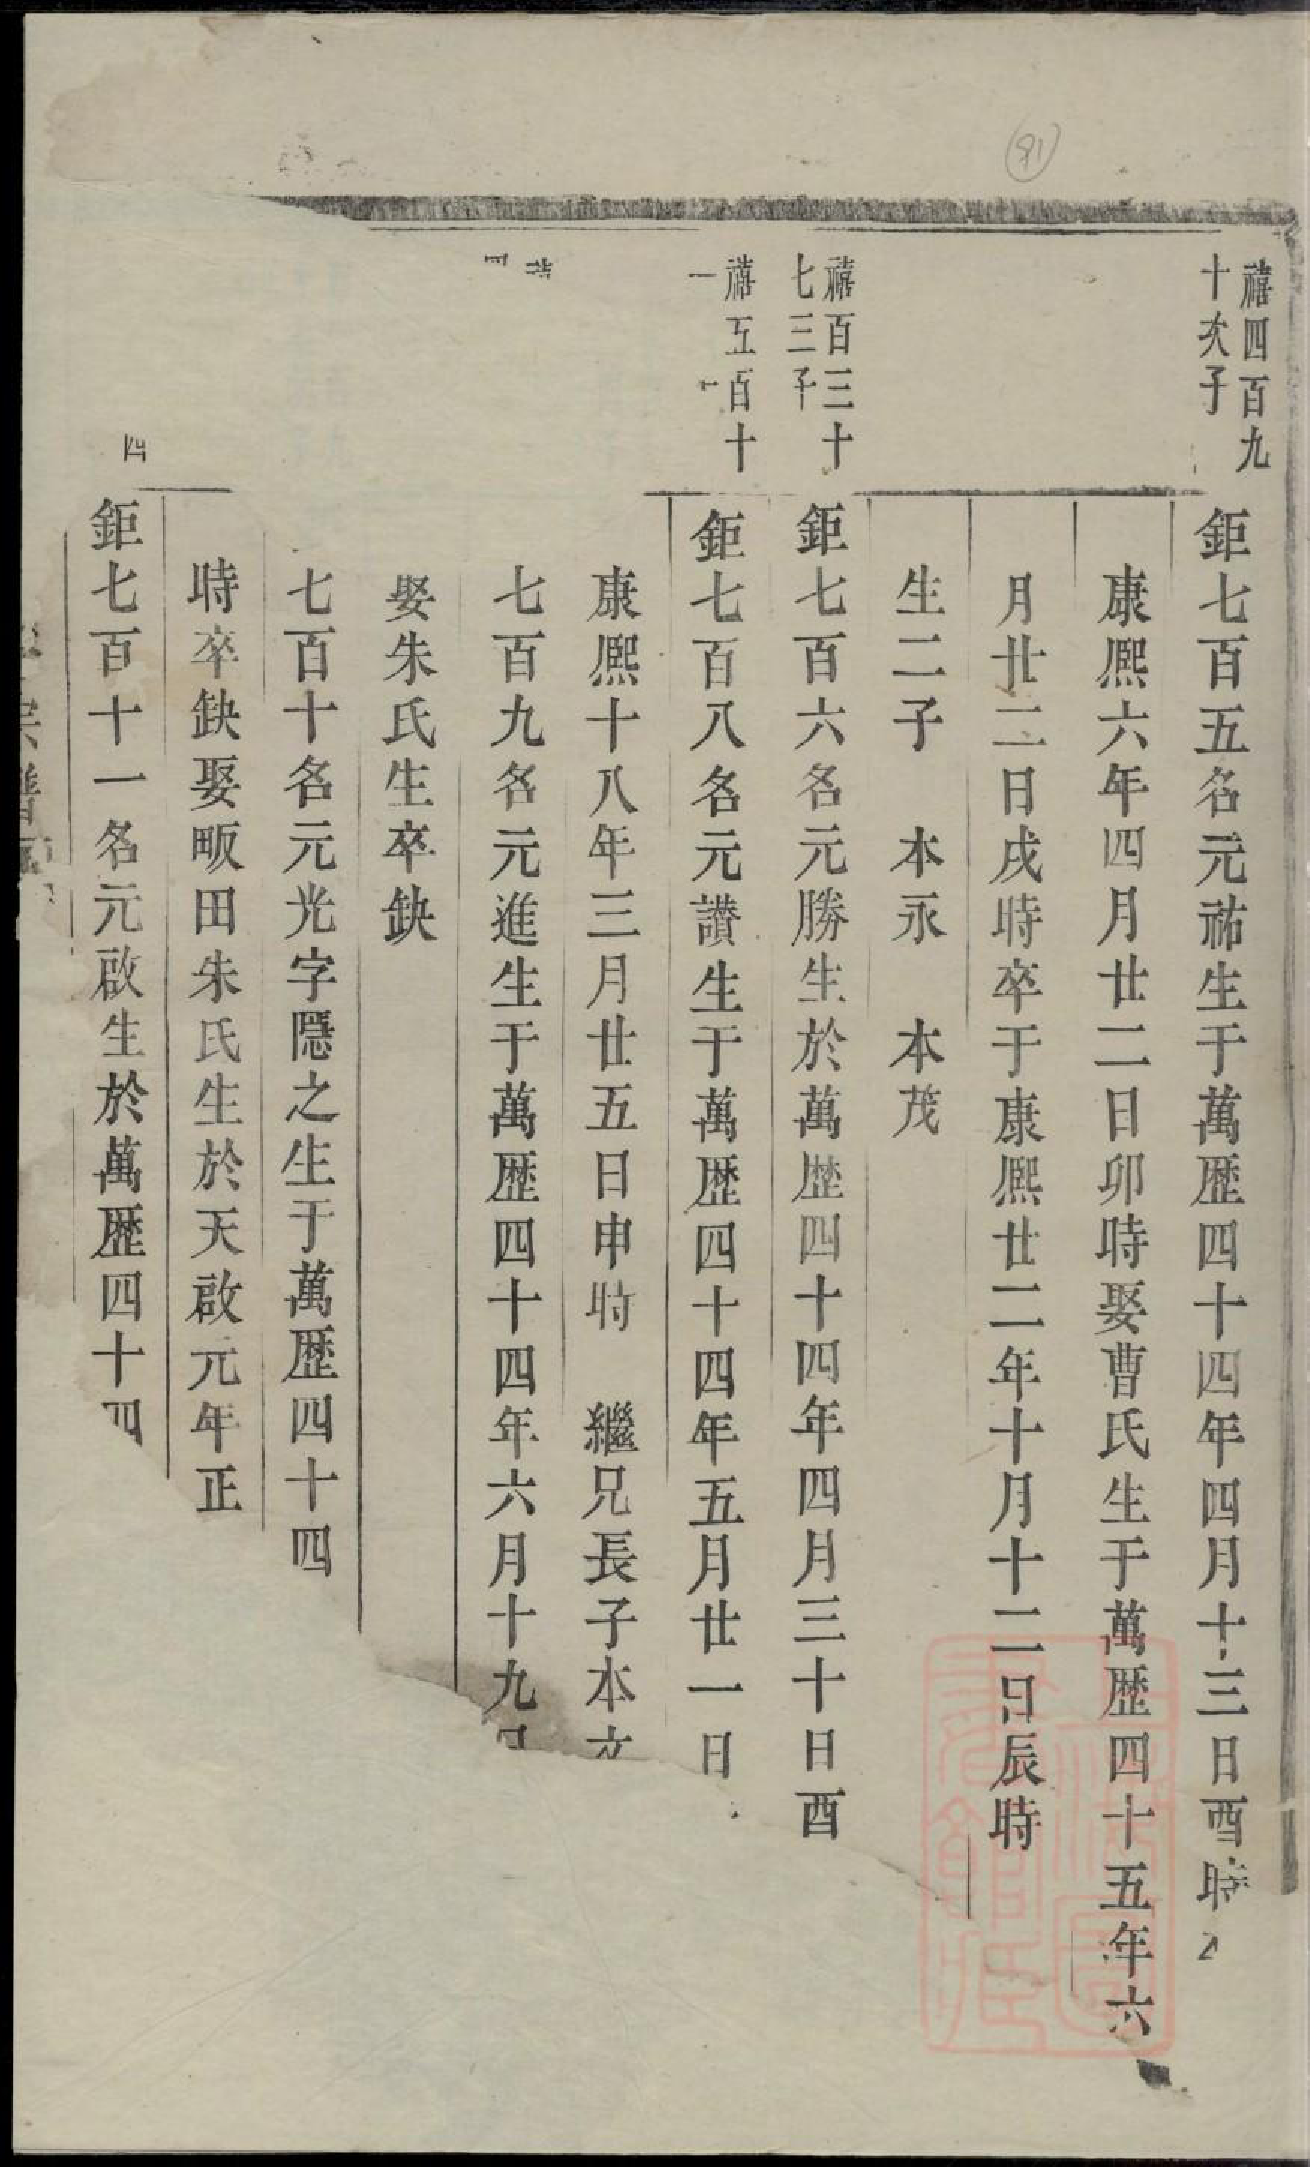 禧四百九
十次子
鉅七百五名元祐生于萬歷四十四年四月十三日酉時
康熈六年四月廿二日卯時娶曹氏生于萬歷四十五年六
月廿二日戌時卒于康熈廿二年十月十二日辰時
生二子 本永 本茂
禧百三十
七三子
鉅七百六名元勝生於萬歷四十四年四月三十日酉
禧五百十
一
鉅七百八名元讚生于萬歷四十四年五月廿一日
康熈十八年三月廿五日申時 繼兄長子本文
四
七百九名元進生于萬歷四十四年六月十九日
娶朱氏生卒缺
七百十名元光字隱之生于萬歷四十四
時卒缺娶畈田朱氏生於天啟元年正
四
鉅七百十一名元啟生於萬歷四十四
宗譜
91